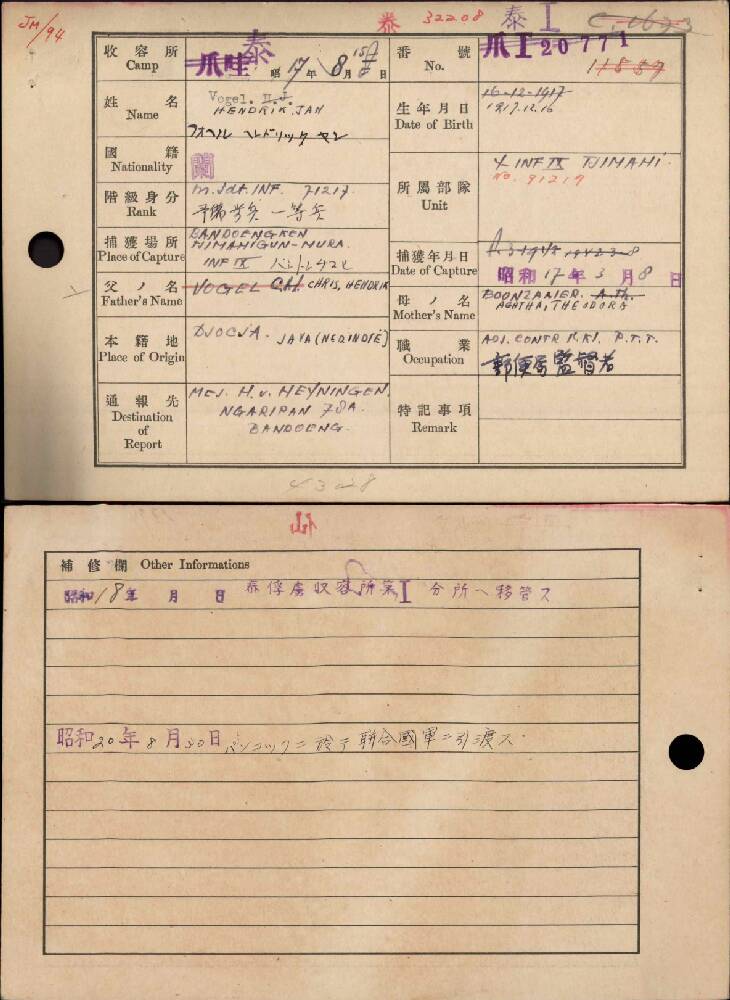 JM/94
泰 32208
泰 I
C. 1633
收容所 Camp
爪哇 泰
昭17年8月15日
番號 No.
爪I 20771
11859
姓名 Name
Vogel. H.J.
HENDRIK JAN
生年月日 Date of Birth
16-12-1917
1917.12.16
國籍 Nationality
蘭
階級身分 Rank
m. Sdt. INF. 71217
予備芳兵 一等兵
所屬部隊 Unit
4 INF IX TJIMAHI.
No. 91217
捕獲場所 Place of Capture
BANDOENGKEN
TJIMAHIGUN-MURA.
INF IX
捕獲年月日 Date of Capture
昭和17年3月8日
父ノ名 Father's Name
VOGEL C.H. CHRIS, HENDRIK
母ノ名 Mother's Name
BOONZAAIER. A.Th.
AGATHA, THEODORA
本籍地 Place of Origin
DJOCJA. JAVA (NED.INDIË)
職業 Occupation
ADJ. CONTR P.T.T.
郵便局監督者
通報先 Destination of Report
MEJ. H. v. HEYNINGEN.
NGARIPAN 78A.
BANDOENG.
特記事項 Remark
仙
補修欄 Other Informations
昭和18年 月 日 泰俘虜収容所第I分所ヘ移管ス
昭和20年8月30日バンコックニ於テ聯合國軍ニ引渡ス.